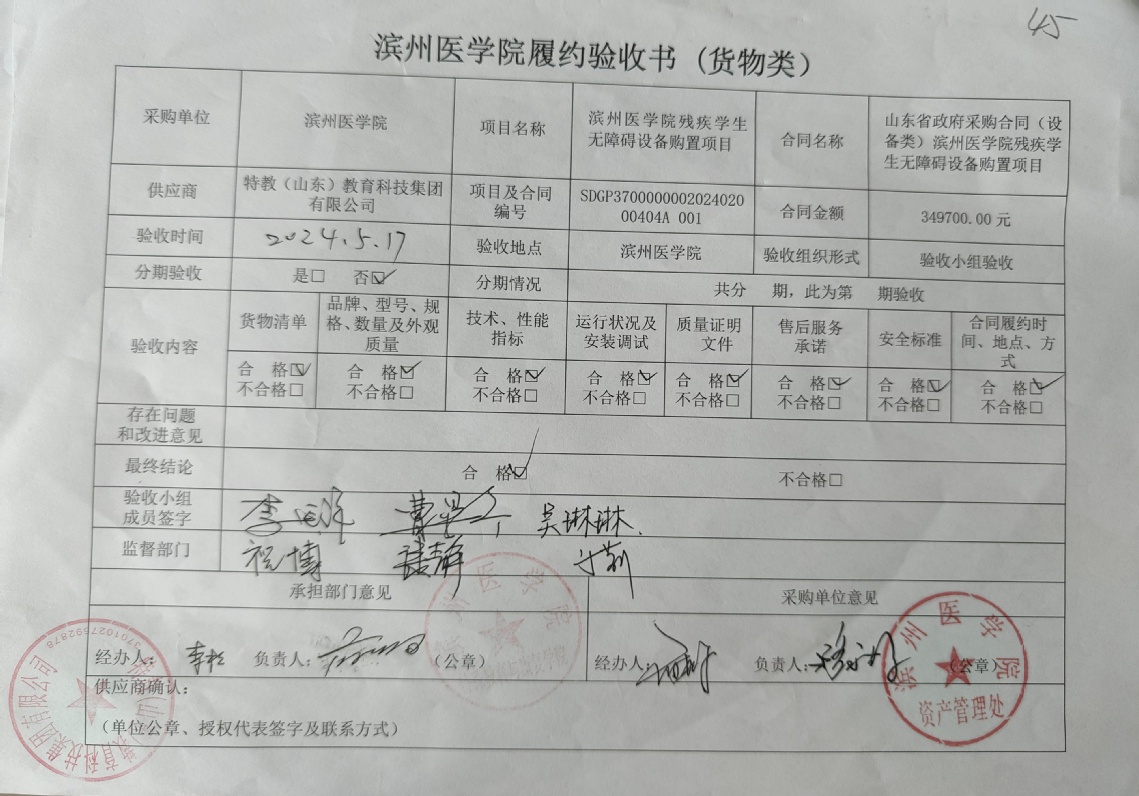 45
滨州医学院履约验收书（货物类）
采购单位
滨州医学院
项目名称
滨州医学院残疾学生
无障碍设备购置项目
合同名称
山东省政府采购合同（设
备类）滨州医学院残疾学
生无障碍设备购置项目
供应商
特教（山东）教育科技集团
有限公司
项目及合同
编号
SDGP3700000002024020
00404A 001
合同金额
349700.00 元
验收时间
2024.5.17
验收地点
滨州医学院
验收组织形式
验收小组验收
分期验收
是□ 否☑
分期情况
共分 期，此为第 期验收
验收内容
货物清单
品牌、型号、规
格、数量及外观
质量
技术、性能
指标
运行状况及
安装调试
质量证明
文件
售后服务
承诺
安全标准
合同履约时
间、地点、方
式
合 格☑
不合格□
合 格☑
不合格□
合 格☑
不合格□
合 格☑
不合格□
合 格☑
不合格□
合 格☑
不合格□
合 格☑
不合格□
合 格☑
不合格□
存在问题
和改进意见
最终结论
合 格☑
不合格□
验收小组
成员签字
吴琳琳
监督部门
祝博
承担部门意见
采购单位意见
经办人：
负责人：
（公章）
经办人：
负责人：
（公章）
滨州医学院
滨州医学院
资产管理处
供应商确认：
（单位公章、授权代表签字及联系方式）
教育科技集团有限公司